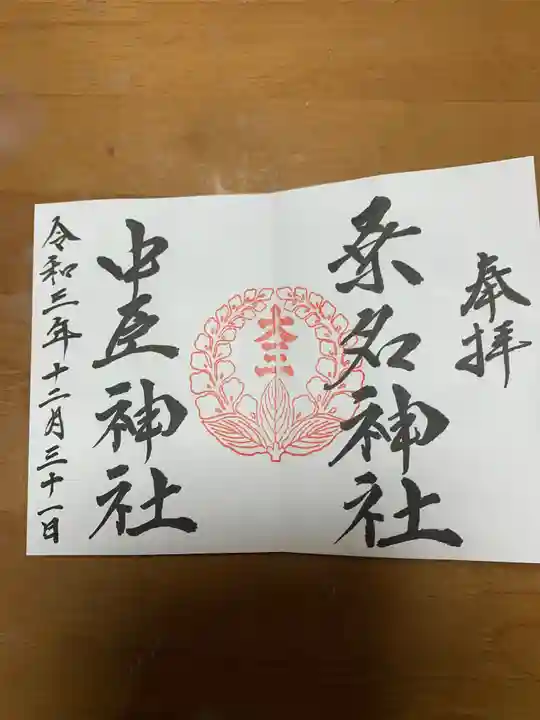 奉拝
桑名神社
本三
中臣神社
令和三年十二月三十一日